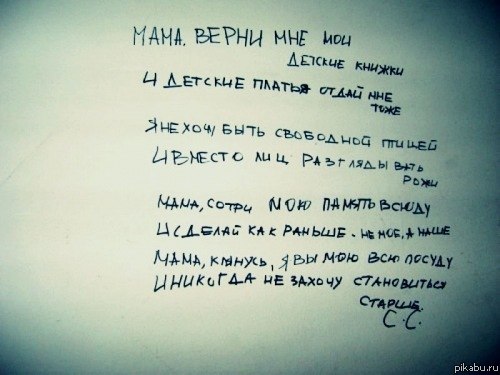 МАМА, ВЕРНИ МНЕ МОИ
ДЕТСКИЕ КНИЖКИ
И ДЕТСКИЕ ПЛАТЬЯ ОТДАЙ МНЕ
ТОЖЕ
Я НЕ ХОЧУ БЫТЬ СВОБОДНОЙ ПТИЦЕЙ
И ВМЕСТО ЛИЦ РАЗГЛЯДЫВАТЬ
РОЖИ
МАМА, СОТРИ МОЮ ПАМЯТЬ ВСЮДУ
И СДЕЛАЙ КАК РАНЬШЕ. НЕ МОЕ, А НАШЕ
МАМА, КЛЯНУСЬ, Я ВЫМОЮ ВСЮ ПОСУДУ
И НИКОГДА НЕ ЗАХОЧУ СТАНОВИТЬСЯ
СТАРШЕ.
С.С.
pikabu.ru